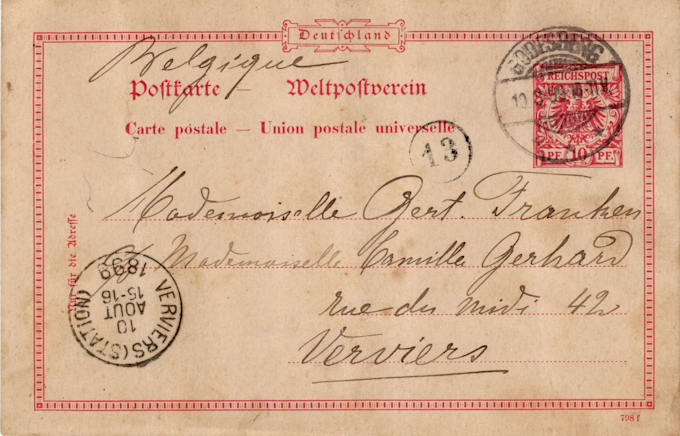 Deutschland
Belgique
Postkarte — Weltpostverein
Carte postale — Union postale universelle
GODESBERG
REICHSPOST
PF. 10 PF.
13
Nur für die Adresse
Mademoiselle Gert. Franken
Mademoiselle Camilla Gerhard
rue du midi 42
Verviers
VERVIERS (STATION)
10
AOUT
15-16
1899
798 f